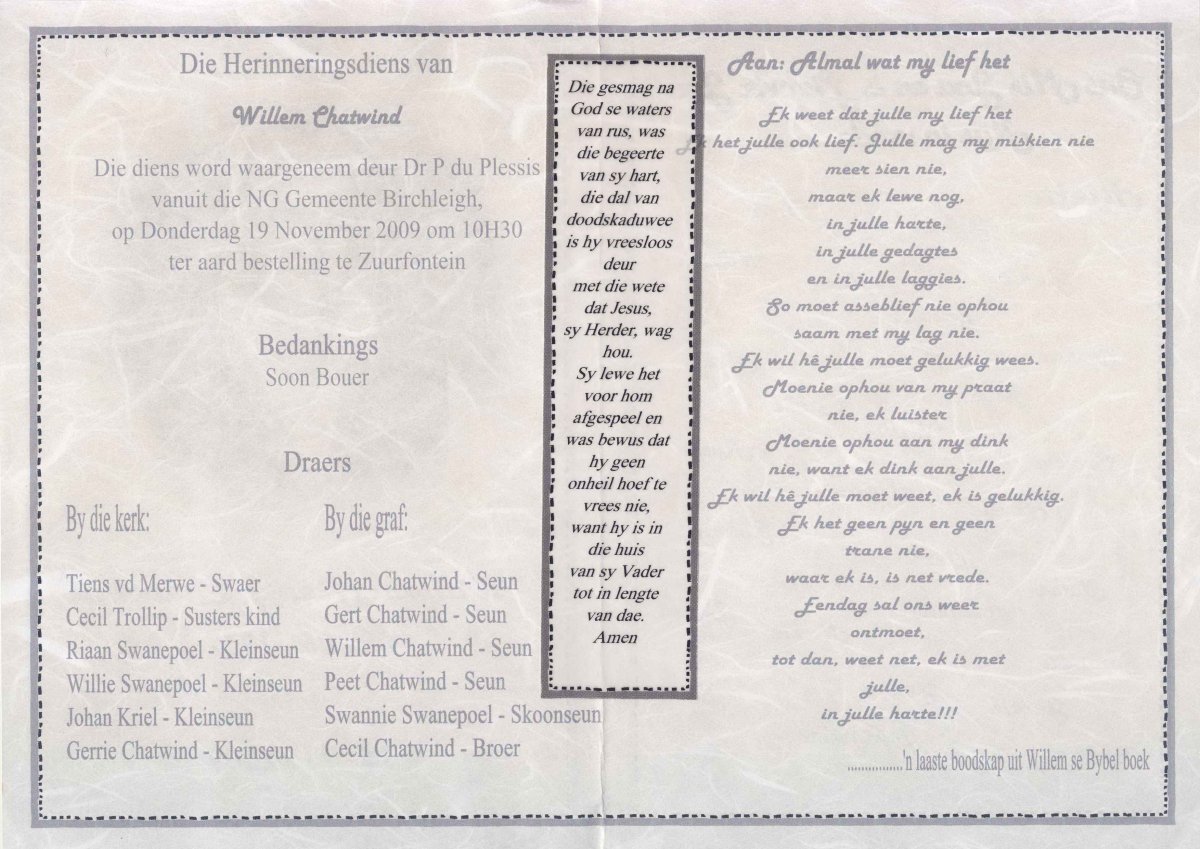 Die Herinneringsdiens van
Willem Chatwind
Die diens word waargeneem deur Dr P du Plessis
vanuit die NG Gemeente Birchleigh,
op Donderdag 19 November 2009 om 10H30
ter aard bestelling te Zuurfontein
Bedankings
Soon Bouer
Draers
By die kerk:
Tiens vd Merwe - Swaer
Cecil Trollip - Susters kind
Riaan Swanepoel - Kleinseun
Willie Swanepoel - Kleinseun
Johan Kriel - Kleinseun
Gerrie Chatwind - Kleinseun
By die graf:
Johan Chatwind - Seun
Gert Chatwind - Seun
Willem Chatwind - Seun
Peet Chatwind - Seun
Swannie Swanepoel - Skoonseun
Cecil Chatwind - Broer
Die gesmag na
God se waters
van rus, was
die begeerte
van sy hart,
die dal van
doodskaduwee
is hy vreesloos
deur
met die wete
dat Jesus,
sy Herder, wag
hou.
Sy lewe het
voor hom
afgespeel en
was bewus dat
hy geen
onheil hoef te
vrees nie,
want hy is in
die huis
van sy Vader
tot in lengte
van dae.
Amen
Aan: Almal wat my lief het
Ek weet dat julle my lief het
Ek het julle ook lief. Julle mag my miskien nie
meer sien nie,
maar ek lewe nog,
in julle harte,
in julle gedagtes
en in julle laggies.
So moet asseblief nie ophou
saam met my lag nie.
Ek wil hê julle moet gelukkig wees.
Moenie ophou van my praat
nie, ek luister
Moenie ophou aan my dink
nie, want ek dink aan julle.
Ek wil hê julle moet weet, ek is gelukkig.
Ek het geen pyn en geen
trane nie,
waar ek is, is net vrede.
Eendag sal ons weer
ontmoet,
tot dan, weet net, ek is met
julle,
in julle harte!!!
................'n laaste boodskap uit Willem se Bybel boek